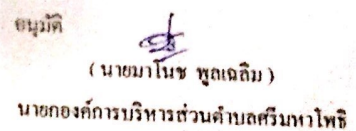 อนุมัติ
(นายมาโนช พูลเฉลิม)
นายกองค์การบริหารส่วนตำบลศรีมหาโพธิ